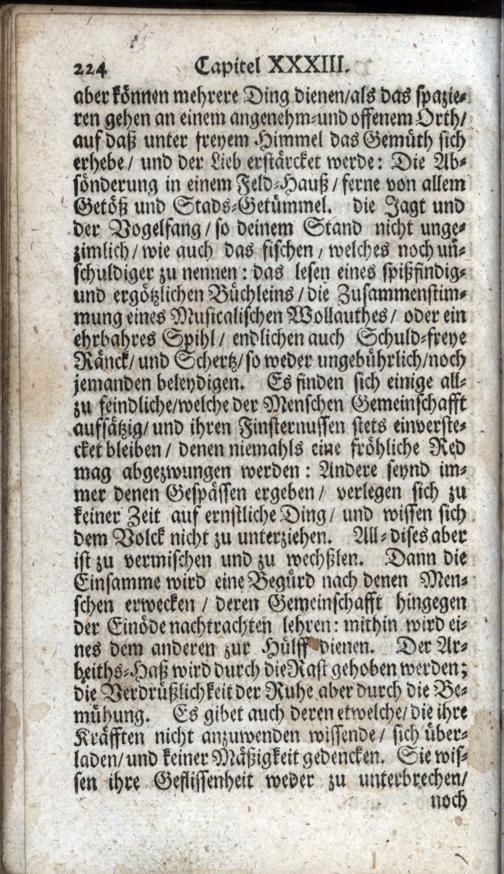 224 Capitel XXXIII.
aber können mehrere Ding dienen/als das spazie-
ren gehen an einem angenehm-und offenem Orth/
auf daß unter freyem Himmel das Gemüth sich
erhebe/ und der Lieb erstärcket werde: Die Ab-
sönderung in einem Feld-Hauß/ ferne von allem
Getöß und Stads-Getümmel. die Jagt und
der Vogelfang/ so deinem Stand nicht unge-
zimlich/ wie auch das fischen/ welches noch un-
schuldiger zu nennen: das lesen eines spißfindig-
und ergötzlichen Büchleins/ die Zusammenstim-
mung eines Musicalischen Wollauthes/ oder ein
ehrbahres Spihl/ endlichen auch Schuld-freye
Ränck/ und Schertz/ so weder ungebührlich/noch
jemanden beleydigen. Es finden sich einige all-
zu feindliche/welche der Menschen Gemeinschafft
aufsätzig/ und ihren Finsternussen stets einverste-
cket bleiben/ denen niemahls eine fröhliche Red
mag abgezwungen werden: Andere seynd im-
mer denen Gespässen ergeben/ verlegen sich zu
keiner Zeit auf ernstliche Ding/ und wissen sich
dem Volck nicht zu unterziehen. All-dises aber
ist zu vermischen und zu wechßlen. Dann die
Einsamme wird eine Begürd nach denen Men-
schen erwecken/ deren Gemeinschafft hingegen
der Einöde nachtrachten lehren: mithin wird ei-
nes dem anderen zur Hülff dienen. Der Ar-
beiths-Haß wird durch die Rast gehoben werden;
die Verdrüßlichkeit der Ruhe aber durch die Be-
mühung. Es gibet auch deren etwelche/ die ihre
Kräfften nicht anzuwenden wissende/ sich über-
laden/ und keiner Mäßigkeit gedencken. Sie wis-
sen ihre Geflissenheit weder zu unterbrechen/
noch